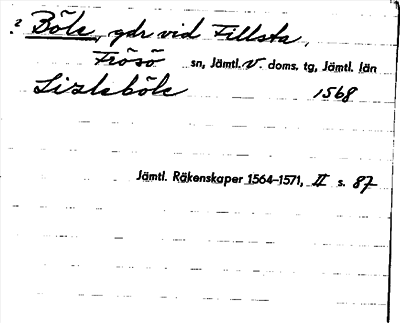 ? Böle, gdr vid Fillsta,
Frösö sn, Jämtl. V. doms. tg, Jämtl. län
Lisleböle 1568
Jämtl. Räkenskaper 1564–1571, II s. 87